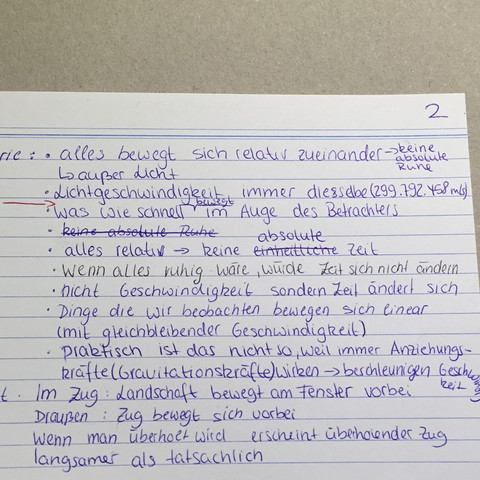 2
rie: · alles bewegt sich relativ zueinander → keine absolute Ruhe
↳ außer Licht
· Lichtgeschwindigkeit immer diesselbe (299.792.458 m/s)
· was wie schnell bewegt im Auge des Betrachters
· keine absolute Ruhe
· alles relativ → keine einheitliche absolute Zeit
· Wenn alles ruhig wäre, würde Zeit sich nicht ändern
· nicht Geschwindigkeit sondern Zeit ändert sich
· Dinge die wir beobachten bewegen sich linear
(mit gleichbleibender Geschwindigkeit)
· praktisch ist das nicht so, weil immer Anziehungs-
kräfte (Gravitationskräfte) wirken → beschleunigen Geschwindigkeit
t. Im Zug: Landschaft bewegt am Fenster vorbei
Draußen: Zug bewegt sich vorbei
Wenn man überholt wird erscheint überholender Zug
langsamer als tatsächlich